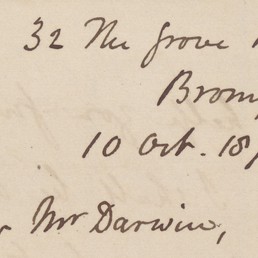 32 The Grove
Brom
10 Oct. 18
Mr Darwin,